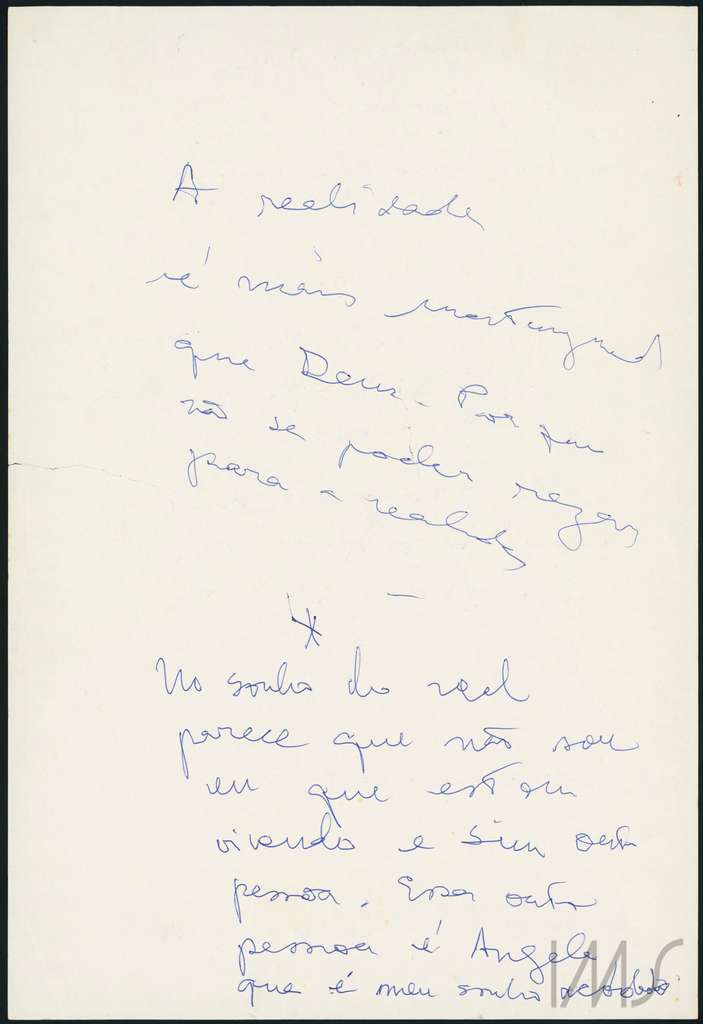 A realidade
é mais inatingível
que Deus. Porque
não se poder rezar
para a realidade
—
*
No sonho do real
parece que não sou
eu que estou
vivendo e sim outra
pessoa. Essa outra
pessoa é Angela
que é meu sonho acordado
IMS